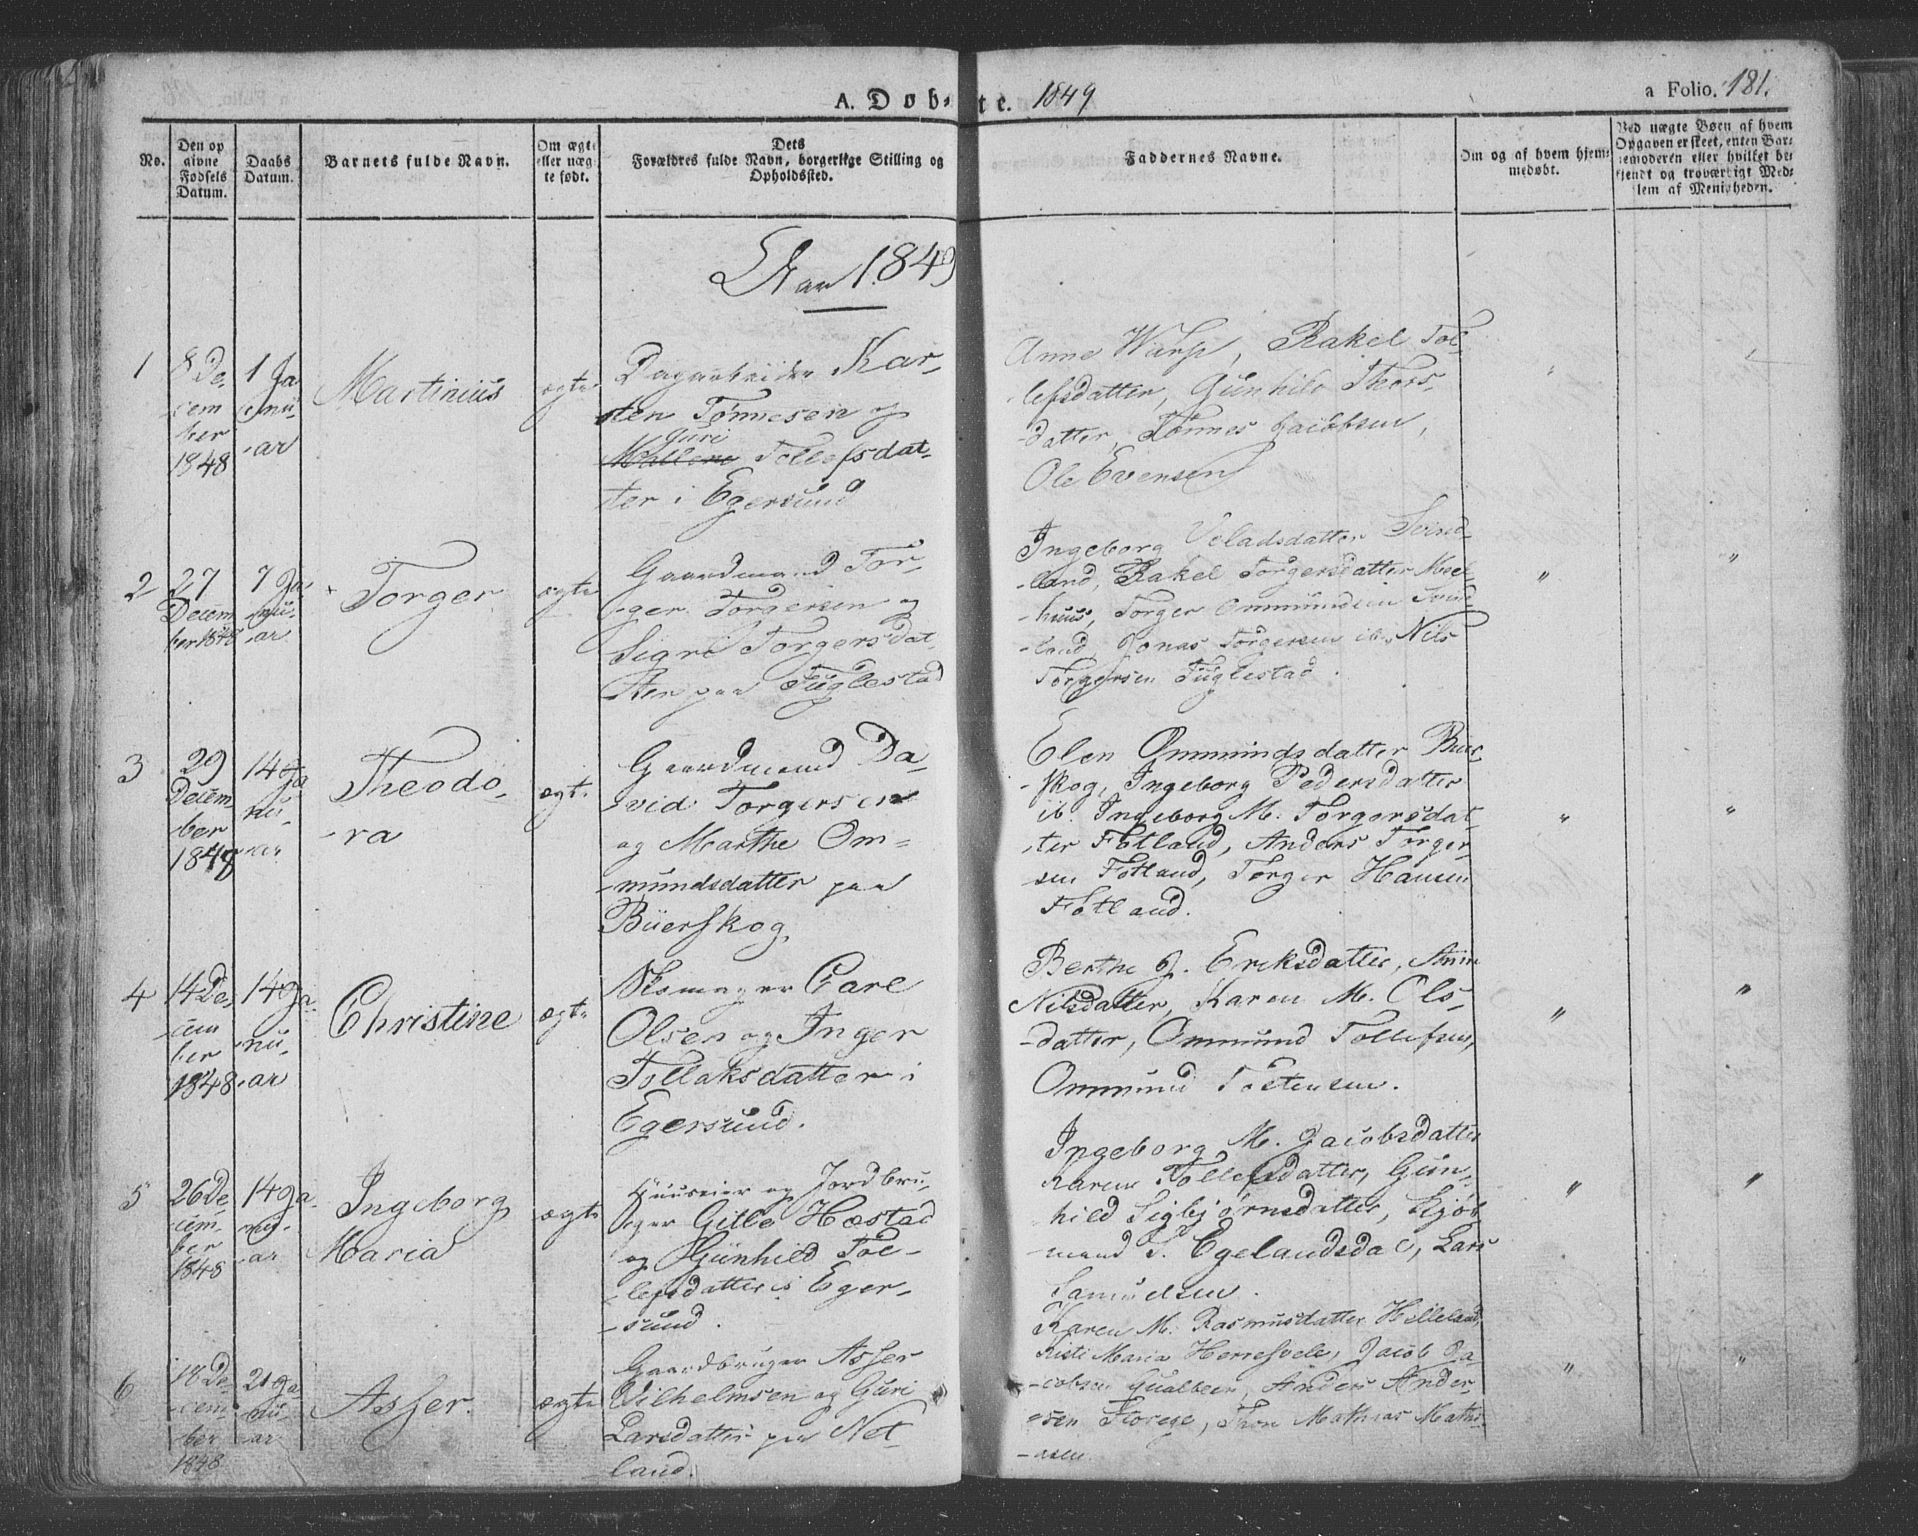 A. Døb- te. 1849
a Folio. 181.
No.
Den op
givne
Fødsels
Datum.
Daabs
Datum.
Barnets fulde Navn.
Om ægte
eller uæg
te født.
Dets
Forældres fulde Navn, borgerlige Stilling og
Opholdssted.
Faddernes Navne.
Om og af hvem hjem-
medøbt.
Ved uægte Børn af hvem
Opgaven er skeet, enten Bar-
nemoderen eller hvilket be-
kjendt og troværdigt Med-
lem af Menigheden.
Aar 1849
1
8 De-
cem
ber
1848
1 Ja
nu-
-ar
Martinius
ægte
Dagarbeider Kar-
sten Tønnesen og
Guri
Mallene Tollefsdat-
ter i Egersund
Anne Rakel Tol-
lefsdatter, Gunhild Thors-
datter, Tønnes Jacobsen,
Ole Evensen
2
27
Decem
ber 1848
7 Ja
nu-
-ar
Torger
ægte
Gaardmand Tor-
-ger Torgersen og
Sigri Torgersdat
ter paa Fuglestad
Ingeborg Svind-
-land, Rakel Torgersdatter
huus, Torger Ommundsen Svind
-land, Jonas Torgersen ib. Nils
Torgersen Fuglestad.
3
29
Decem-
ber
1848
14 Ja
nu-
-ar
Theodo-
-ra
ægt.
Gaardmand Da-
-vid Torgersen
og Marthe Om-
-mundsdatter paa
Büerskog
Elen Ommundsdatter Buer-
-skog, Ingeborg Pedersdatter
ib. Ingeborg M. Torgersdat-
ter Fotland, Anders Torger-
sen Fotland, Torger Hansen
Fotland.
4
14 De-
cem
ber
1848
14 Ja-
nu-
-ar
Christine
ægte
Carl
Olsen og Inger
Tollaksdatter i
Egersund.
Berthe J. Eriksdatter, Anne
Nilsdatter, Karen M. Ols-
-datter, Ommund Tollefsen,
Ommund Tostensen.
5
26 De-
cem-
ber
1848
14 Ja-
nu-
-ar
Ingeborg
Maria
ægte
Huuseier og Jordbru-
-ger Gitle Hæstad
og Gunhild Tol-
-lefsdatter i Eger-
-sund.
Ingeborg M. Jacobsdatter
Karen Tollefsdatter, Gun-
hild Sigbjørnsdatter, Kjøb
-mand S. Egelandsdal, Lars
Samuelsen.
6
18 De-
-cem-
ber
1848
21 Ja
nu-
-ar
Asser.
ægte
Gaardbruger Asser
Vilhelmsen og Guri
Larsdatter paa Net-
land.
Karen M. Rasmusdatter Helleland,
Kisti Maria Jacob Ja
-cobsen Anders Ander-
-sen Thor Mathias Mathi-
-asen.